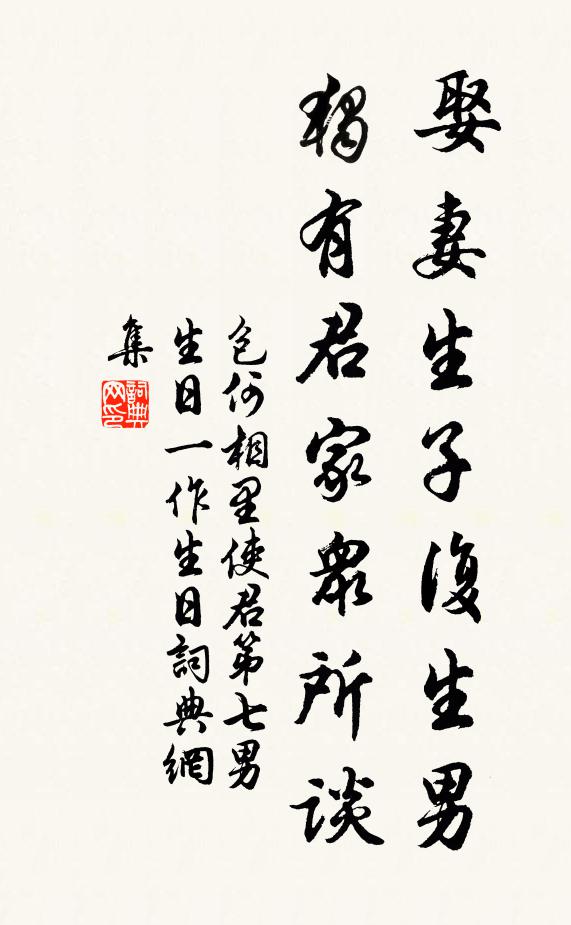 娶妻生子復生男
獨有君家衆所談
包何相里使君第七男
生日一作生日詞典網
集
詞典
网印